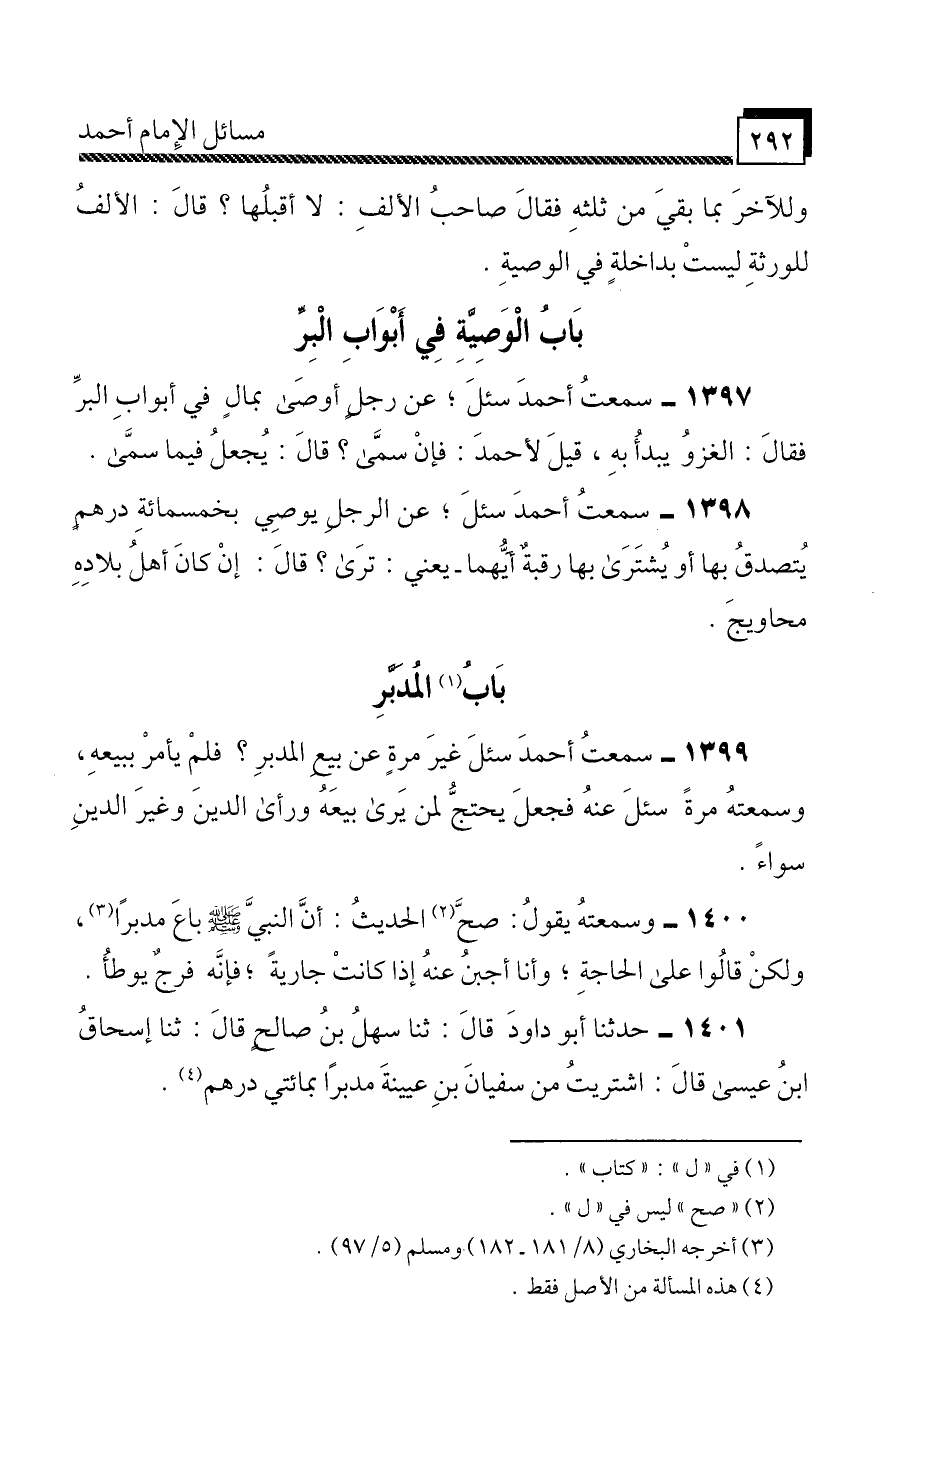 ٢٩٢ مسائل الإمام أحمد
وللآخرَ بما بقيَ من ثلثهِ فقالَ صاحبُ الألفِ : لا أقبلُها ؟ قالَ : الألفُ
للورثةِ ليستْ بداخلةٍ في الوصيةِ .
بَابُ الْوَصِيَّةِ فِي أَبْوَابِ الْبِرِّ
١٣٩٧ ـ سمعتُ أحمدَ سئلَ ؛ عن رجلٍ أوصَىٰ بمالٍ في أبوابِ البرِّ
فقالَ : الغزوُ يبدأُ بهِ ، قيلَ لأحمدَ : فإنْ سمَّىٰ ؟ قالَ : يُجعلُ فيما سمَّىٰ .
١٣٩٨ ـ سمعتُ أحمدَ سئلَ ؛ عن الرجلِ يوصِي بخمسمائةِ درهمٍ
يُتصدقُ بها أو يُشتَرَىٰ بها رقبةٌ أيُّهما ـ يعني : ترَىٰ ؟ قالَ : إنْ كانَ أهلُ بلادِهِ
محاويجَ .
بَابُ(١) الْمُدَبَّرِ
١٣٩٩ ـ سمعتُ أحمدَ سئلَ غيرَ مرةٍ عن بيعِ المدبرِ ؟ فلمْ يأمرْ ببيعهِ ،
وسمعتهُ مرةً سئلَ عنهُ فجعلَ يحتجُّ لمن يَرىٰ بيعَهُ ورأىٰ الدينَ وغيرَ الدينِ
سواءً .
١٤٠٠ ـ وسمعتهُ يقولُ : صحَّ(٢) الحديثُ : أنَّ النبيَّ ﷺ باعَ مدبرًا(٣) ،
ولكنْ قالُوا علىٰ الحاجةِ ؛ وأنا أجبنُ عنهُ إذا كانتْ جاريةً ؛ فإنَّه فرجٌ يوطأُ .
١٤٠١ ـ حدثنا أبو داودَ قالَ : ثنا سهلُ بنُ صالحٍ قالَ : ثنا إسحاقُ
ابنُ عيسىٰ قالَ : اشتريتُ من سفيانَ بنِ عيينةَ مدبرًا بمائتي درهم(٤) .
(١) في « ل » : « كتاب » .
(٢) « صح » ليس في « ل » .
(٣) أخرجه البخاري (٨/ ١٨١ ـ ١٨٢) ومسلم (٥/ ٩٧) .
(٤) هذه المسألة من الأصل فقط .